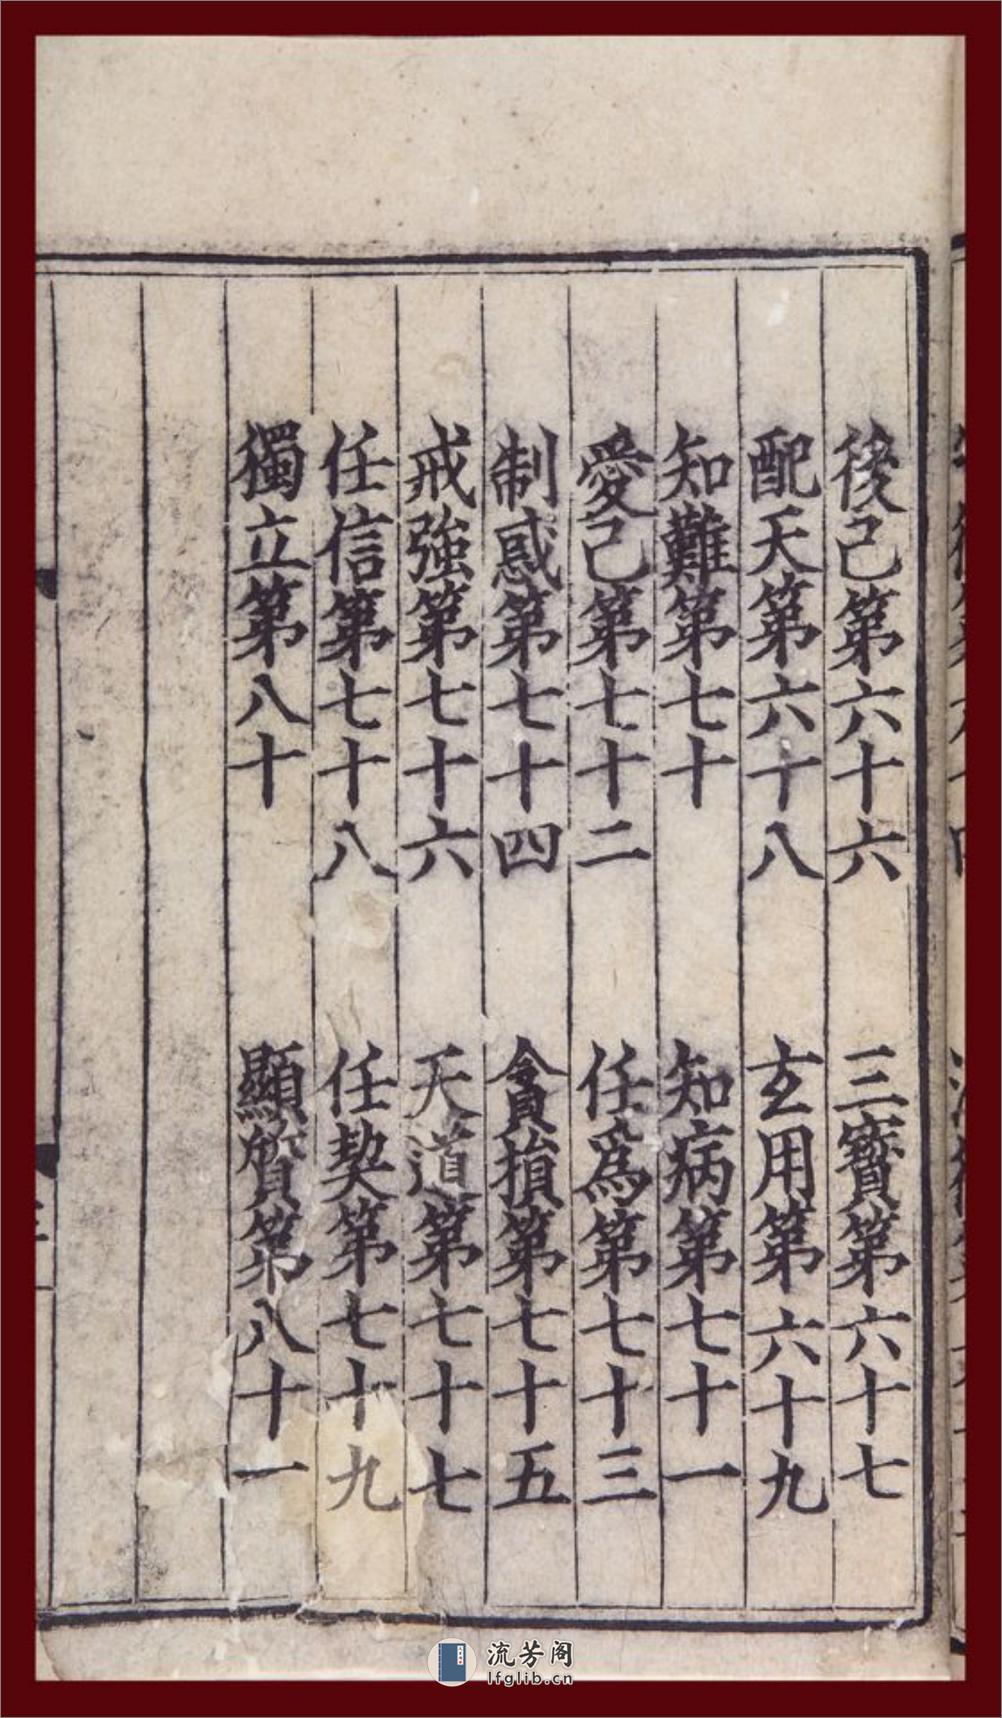 後己第六十六　三寳第六十七
配天第六十八　玄用第六十九
知難第七十　知病第七十一
愛己第七十二　任爲第七十三
制惑第七十四　貪損第七十五
戒強第七十六　天道第七十七
任信第七十八　任契第七十九
獨立第八十　顯質第八十一
流芳阁
lfglib.cn